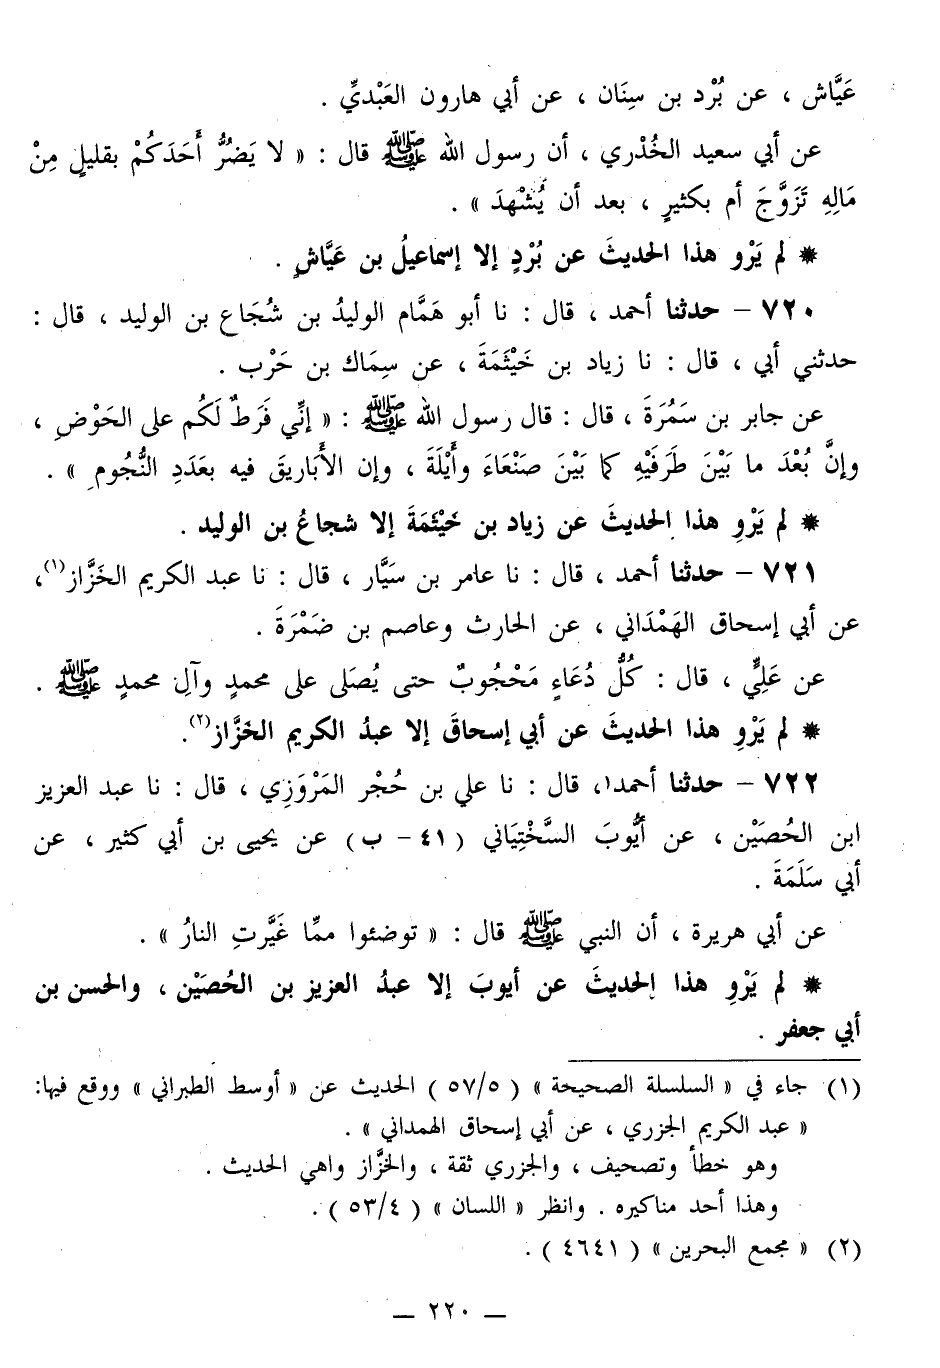 عَيَّاش ، عن بُرْد بن سِنَان ، عن أبي هارون العَبْديِّ .
عن أبي سعيد الخُدْري ، أن رسول الله ﷺ قال : « لا يَضُرُّ أَحَدَكُمْ بقليلٍ مِنْ
مَالِهِ تَزَوَّجَ أم بكثيرٍ ، بعد أن يُشْهدَ » .
* لم يَرْوِ هذا الحديثَ عن بُرْدٍ إلا إسماعيلُ بن عَيَّاشٍ .
٧٢٠ - حدثنا أحمد ، قال : نا أبو هَمَّام الوليدُ بن شُجَاع بن الوليد ، قال :
حدثني أبي ، قال : نا زياد بن خَيْثَمَةَ ، عن سِمَاك بن حَرْب .
عن جابر بن سَمُرَةَ ، قال : قال رسول الله ﷺ : « إنِّي فَرَطٌ لَكُم على الحَوْضِ ،
وإنَّ بُعْدَ ما بَيْنَ طَرَفَيْهِ كما بَيْنَ صَنْعَاءَ وأَيْلَةَ ، وإن الأَباريقَ فيه بعَدَدِ النُّجُومِ » .
* لم يَرْوِ هذا الحديثَ عن زياد بن خَيْثَمَةَ إلا شجاعُ بن الوليد .
٧٢١ - حدثنا أحمد ، قال : نا عامر بن سَيَّار ، قال : نا عبد الكريم الخَزَّاز(١)،
عن أبي إسحاق الهَمْدَاني ، عن الحارث وعاصم بن ضَمْرَةَ .
عن عَلِيٍّ ، قال : كُلُّ دُعَاءٍ مَحْجُوبٌ حتى يُصَلى على محمدٍ وآلِ محمدٍ ﷺ .
* لم يَرْوِ هذا الحديثَ عن أبي إسحاقَ إلا عبدُ الكريم الخَزَّاز(٢).
٧٢٢ - حدثنا أحمد، قال : نا علي بن حُجْر المَرْوَزِي ، قال : نا عبد العزيز
ابن الحُصَيْن ، عن أيُّوبَ السَّخْتِيَاني ( ٤١ - ب ) عن يحيى بن أبي كثير ، عن
أبي سَلَمَةَ .
عن أبي هريرة ، أن النبي ﷺ قال : « توضئوا ممَّا غَيَّرتِ النارُ » .
* لم يَرْوِ هذا الحديثَ عن أيوبَ إلا عبدُ العزيز بن الحُصَيْن ، والحسن بن
أبي جعفر .
(١) جاء في « السلسلة الصحيحة » ( ٥٧/٥ ) الحديث عن « أوسط الطبراني » ووقع فيها:
« عبد الكريم الجزري ، عن أبي إسحاق الهمداني » .
وهو خطأ وتصحيف ، والجزري ثقة ، والخزَّاز واهي الحديث .
وهذا أحد مناكيره . وانظر « اللسان » ( ٥٣/٤ ) .
(٢) « مجمع البحرين » ( ٤٦٤١ ) .
— ٢٢٠ —